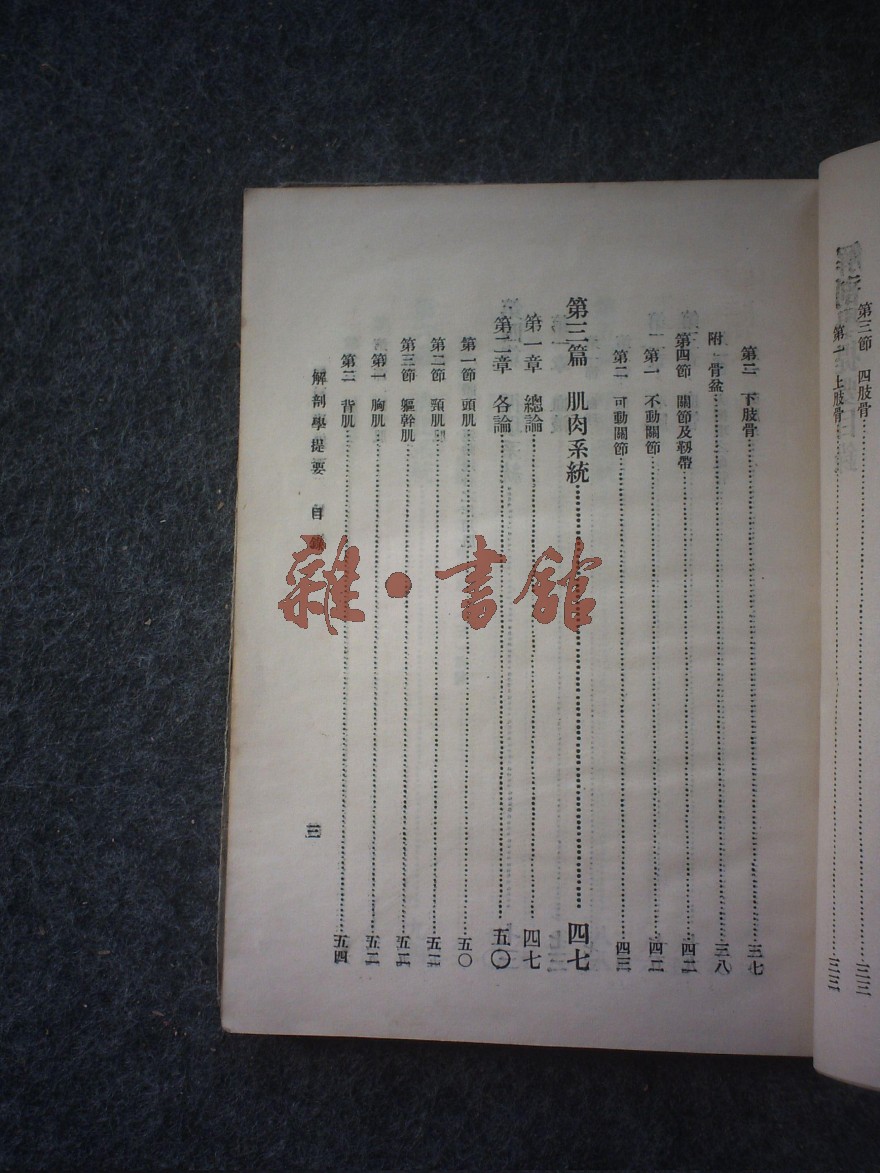 第三節　四肢骨……三三
第一　上肢骨……三三
第二　下肢骨……三七
附　骨盆……三八
第四節　關節及靱帶……四二
第一　不動關節……四二
第二　可動關節……四三
第三篇　肌肉系統……四七
第一章　總論……四七
第二章　各論……五〇
第一節　頭肌……五〇
第二節　頸肌……五二
第三節　軀幹肌……五二
第一　胸肌……五二
第二　背肌……五四
解剖學提要　目錄
三
雜·書館